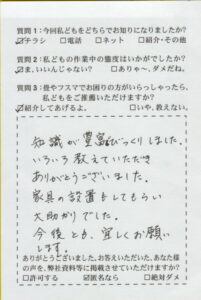 質問1:今回私どもをどちらでお知りになりましたか?
☑チラシ □電話 □ネット □紹介・その他
質問2:私どもの作業中の態度はいかがでしたか?
☑ま、いいんじゃない? □ありゃ〜、ダメだね。
質問3:畳やフスマでお困りの方がいらっしゃったら、
私どもをご推薦いただけますか?
☑紹介してあげるよ。 □いや、教えない。
知識が豊富でびっくりしました。
いろいろ教えていただき
ありがとうございました。
家具の設置もしてもらい
大助かりでした。
今後とも、宜しくお願い
します。
ありがとうございました。お答えいただいた、あなた様
の声を、弊社資料等に掲載させていただけますか?
□許可する ☑匿名なら □絶対ダメ